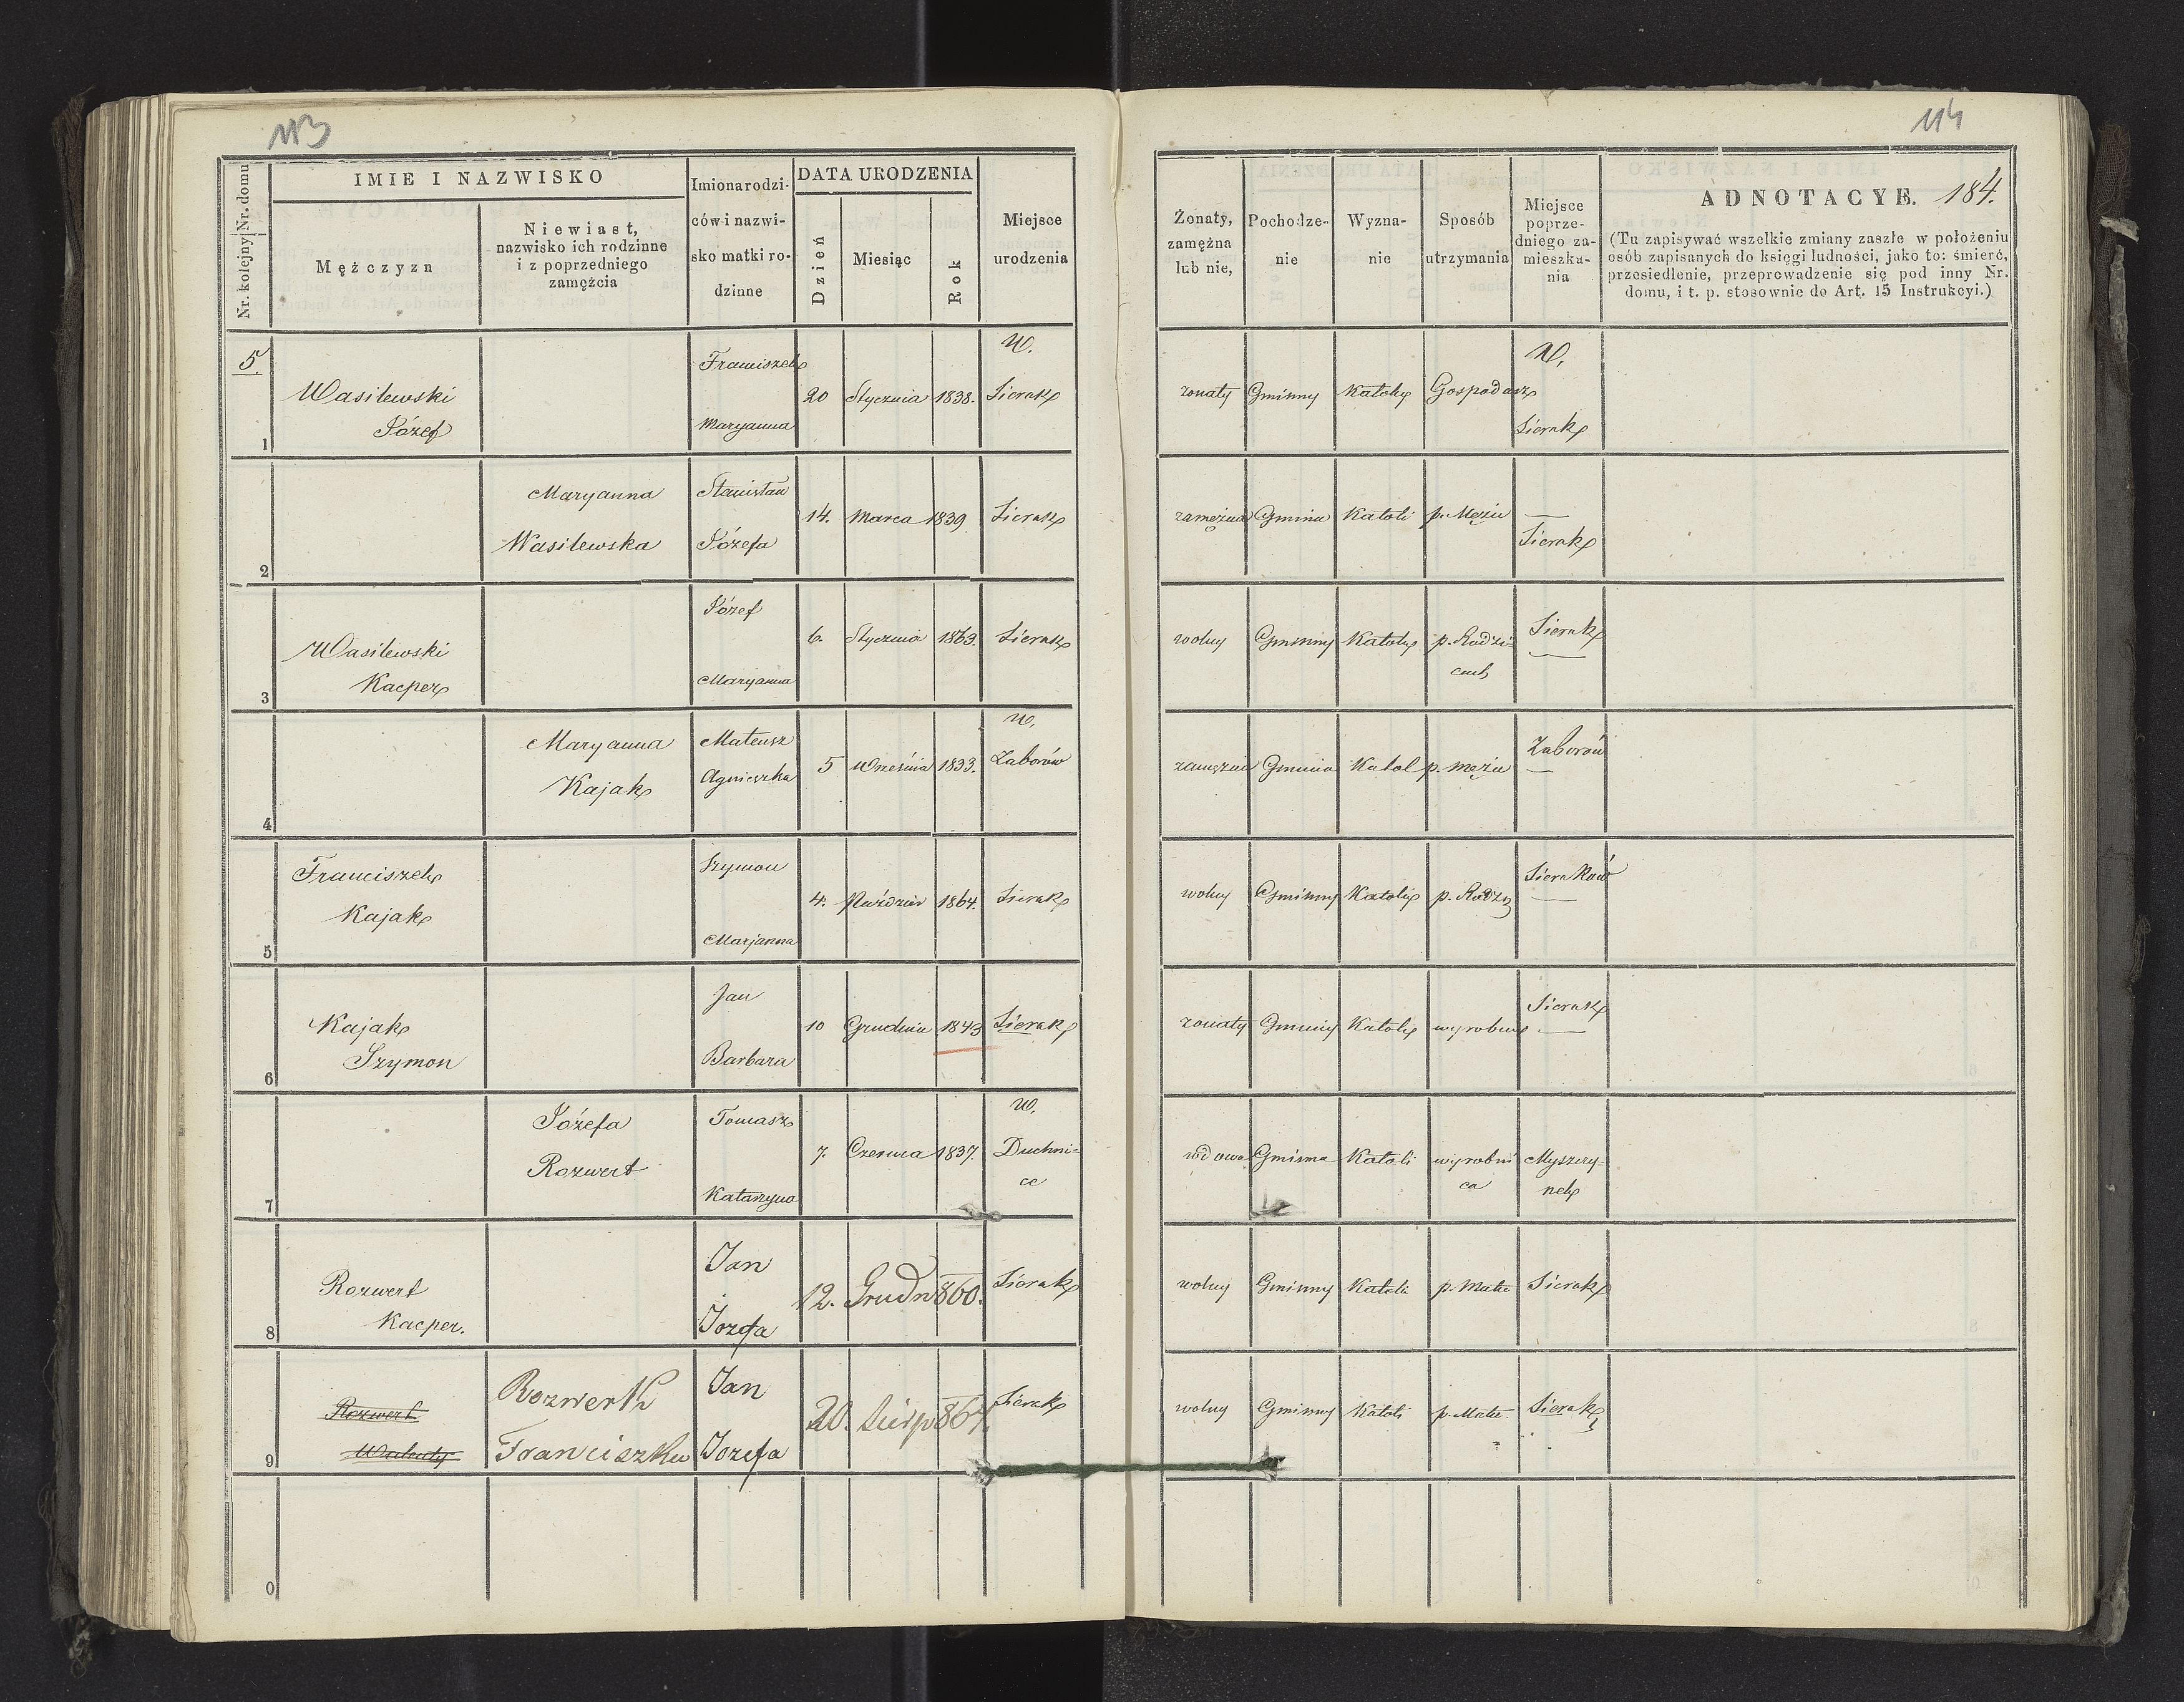 113
Nr. kolejny
Nr. domu
IMIE I NAZWISKO
Mężczyzn
Niewiast,
nazwisko ich rodzinne
i z poprzedniego
zamężcia
Imiona rodzi-
ców i nazwi-
sko matki ro-
dzinne
DATA URODZENIA
Dzień
Miesiąc
Rok
Miejsce
urodzenia
5.
1
Wasilewski
Józef
Franciszek
Maryanna
20
Stycznia
1838.
W.
Sierak
2
Maryanna
Wasilewska
Stanisław
Józefa
14.
Marca
1839
Sierak
3
Wasilewski
Kacper
Józef
Maryanna
6.
Stycznia
1863.
Sierak
4
Maryanna
Kajak
Mateusz
Agnieszka
5
Września
1833.
W.
Zaborów
5
Franciszek
Kajak
Szymon
Marjanna
4.
Paździer
1864.
Sierak
6
Kajak
Szymon
Jan
Barbara
10
Grudnia
1843
Sierak
7
Józefa
Rozwert
Tomasz
Katarzyna
7.
Czerwca
1837.
W.
Duchni-
ce
8
Rozwert
Kacper.
Jan
Jozefa
12.
Grudn
860.
Sierak
9
Rozwert
Rozwerth
Franciszka
Jan
Jozefa
20.
Sierp
864.
Sierak
0
114
Żonaty,
zamężna
lub nie,
Pochodze-
nie
Wyzna-
nie
Sposób
utrzymania
Miejsce
poprze-
dniego za-
mieszka-
nia
ADNOTACYE. 184.
(Tu zapisywać wszelkie zmiany zaszłe w położeniu
osób zapisanych do księgi ludności, jako to: śmierć,
przesiedlenie, przeprowadzenie się pod inny Nr.
domu, i t. p. stosownie do Art. 15 Instrukcyi.)
żonaty
Gminny
Katolik
Gospodarz
W.
Sierak
zamężna
Gminna
Katoli
p. Mężu
—
Sierak
wolny
Gminny
Katolik
p. Rodzi-
cach
Sierak
—
zamężna
Gminna
Katol
p. mężu
Zaborów
—
wolny
Gminny
Katolik
p. Rodz
Sieraków
—
żonaty
Gminny
Katolik
wyrobnik
Sierak
—
wdowa
Gminna
Katoli
wyrobni
ca
Myszczy-
nek
wolny
Gminny
Katoli
p. Matce
Sierak
wolny
Gminny
Katoli
p. Matce
Sierak